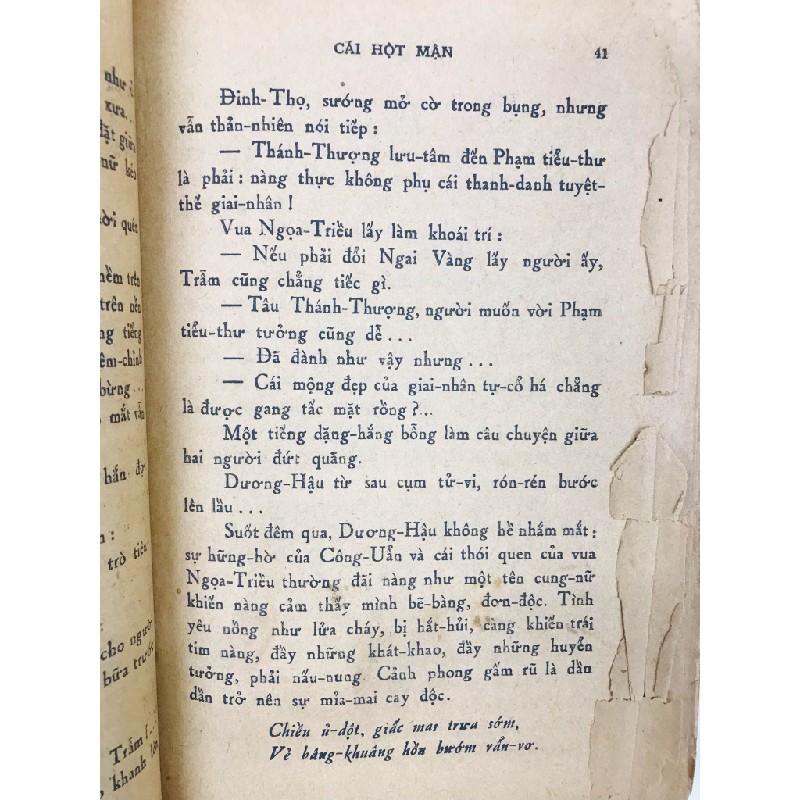 như
xưa...
đặt giữa
nữ kéo
nềm trên
trên nền
tiếng
bừng...
mắt vẫn
hắn
trò tiêu
cho người
bữa trước
Trẫm
khanh
CÁI HỘT MẬN 41
Đinh-Thọ, sướng mở cờ trong bụng, nhưng
vẫn thản-nhiên nói tiếp :
— Thánh-Thượng lưu-tâm đến Phạm tiểu-thư
là phải : nàng thực không phụ cái thanh-danh tuyệt-
thế giai-nhân !
Vua Ngọa-Triều lấy làm khoái trí :
— Nếu phải đổi Ngai Vàng lấy người ấy,
Trẫm cũng chẳng tiếc gì.
— Tâu Thánh-Thượng, người muốn vời Phạm
tiểu-thư tưởng cũng dễ...
— Đã đành như vậy nhưng...
— Cái mộng đẹp của giai-nhân tự-cổ há chẳng
là được gang tấc mặt rồng ?...
Một tiếng dặng-hắng bỗng làm câu chuyện giữa
hai người đứt quãng.
Dương-Hậu từ sau cụm tử-vi, rón-rén bước
lên lầu...
Suốt đêm qua, Dương-Hậu không hề nhắm mắt :
sự hững-hờ của Công-Uẩn và cái thói quen của vua
Ngọa-Triều thường đãi nàng như một tên cung-nữ
khiến nàng cảm thấy mình bẽ-bàng, đơn-độc. Tình
yêu nồng như lửa cháy, bị hắt-hủi, càng khiến trái
tim nàng, đầy những khát-khao, đầy những huyễn
tưởng, phải nấu-nung. Cảnh phong gấm rũ là dần
dần trở nên sự mỉa-mai cay độc.
Chiều ủ-dột, giấc mai trưa sớm,
Vẻ bâng-khuâng hồn bướm vẩn-vơ.